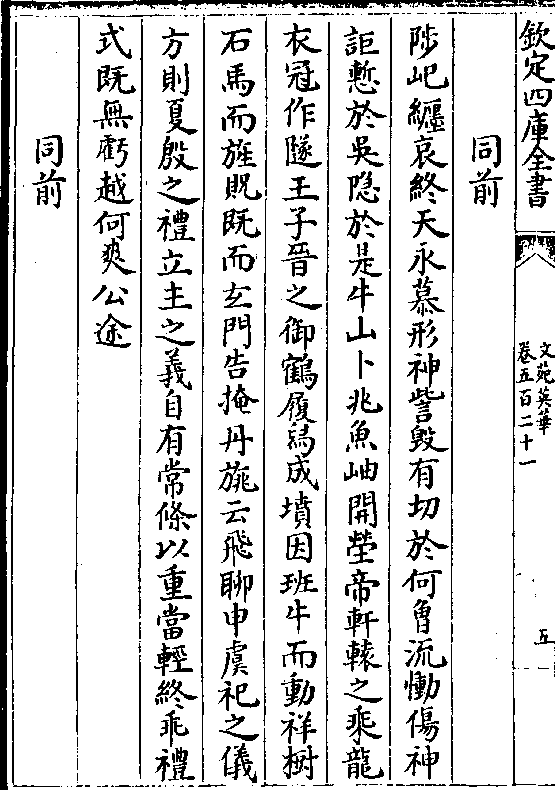 欽定四庫全書
文苑英華
卷五百二十一
五
同前
陟岵纒哀終天永慕形神訾毀有切於何曾流慟傷神
詎慙於吳隐於是牛山卜兆魚岫開塋帝軒轅之乘龍
衣冠作隧王子晉之御鶴履舄成墳因班牛而動祥樹
石馬而旌貺既而玄門告掩丹旐云飛聊申虞祀之儀
方則夏殷之禮立主之義自有常條以重當輕終乖禮
式既無虧越何爽公途
同前